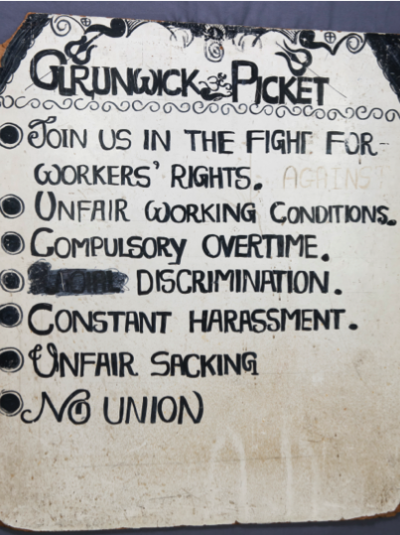 GRUNWICK PICKET
JOIN US IN THE FIGHT FOR
WORKERS' RIGHTS. AGAINST
UNFAIR WORKING CONDITIONS.
COMPULSORY OVERTIME.
DISCRIMINATION.
CONSTANT HARASSMENT.
UNFAIR SACKING
NO UNION